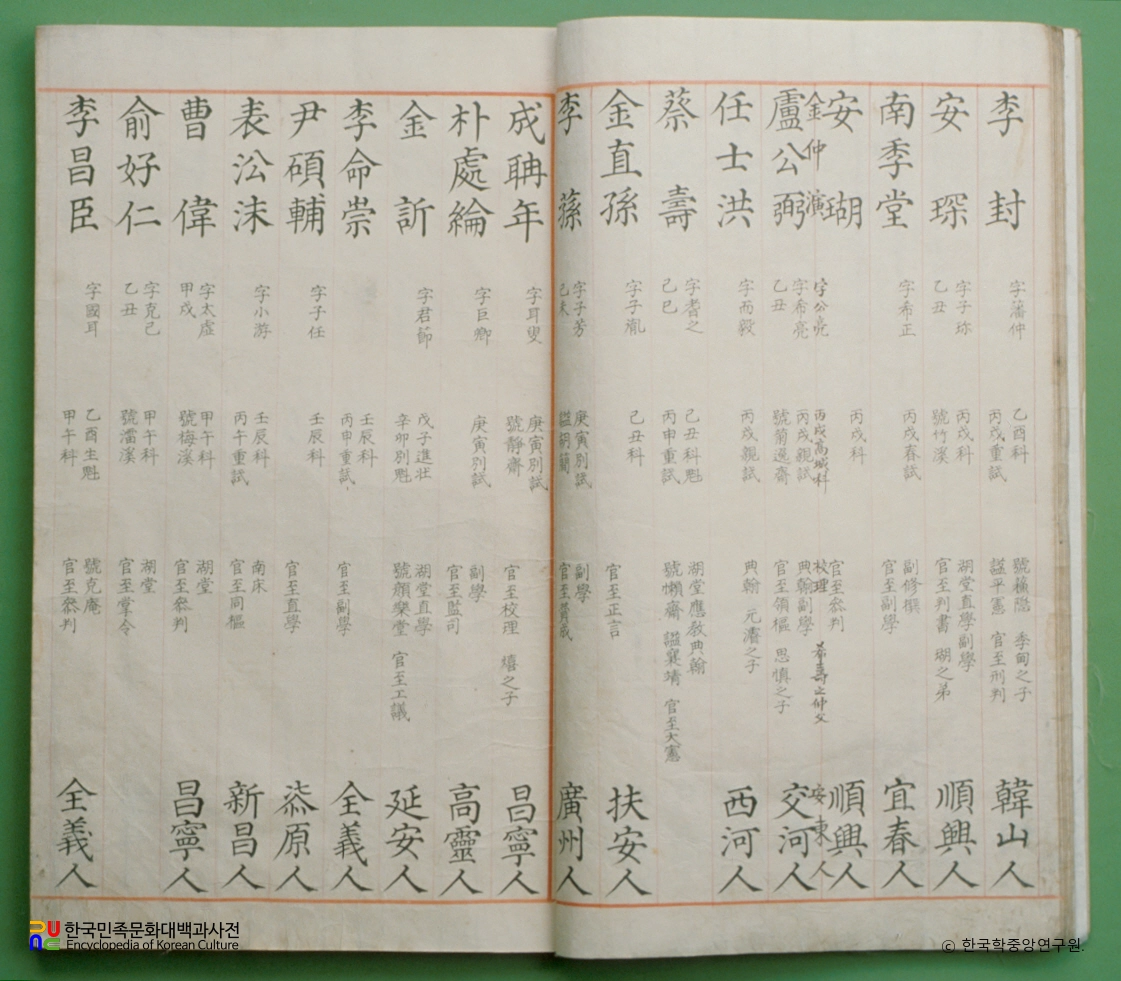 李封 字藩仲 乙酉科 丙戌重試 號蘓隱 季甸之子 諡平憲 官至刑判 韓山人
安琛 字子珍 乙丑 丙戌科 號竹溪 湖堂直學副學 官至判書 瑚之弟 順興人
南季堂 字希正 丙戌春試 副修撰 官至副學 宜春人
安瑚 丙戌科 官至叅判 順興人
金仲演 字公亮 丙戌高城科 校理 希壽之仲父 安東人
盧公弼 字希亮 乙丑 丙戌親試 號菊逸齋 典翰副學 官至領樞 思愼之子 交河人
任士洪 字而毅 丙戌親試 典翰 元濬之子 西河人
蔡壽 字耆之 己巳 己丑科魁 丙申重試 湖堂應敎典翰 號懶齋 諡襄靖 官至大憲
金直孫 字子胤 己丑科 官至正言 扶安人
李蓀 字子芳 己未 庚寅別試 諡胡簡 副學 官至贊成 廣州人
成聃年 字耳叟 庚寅別試 號靜齋 官至校理 熺之子 昌寧人
朴處綸 字巨卿 庚寅別試 副學 官至監司 高靈人
金訢 字君節 戊子進壯 辛卯別魁 湖堂直學 號顔樂堂 官至工議 延安人
李命崇 壬辰科 丙申重試 官至副學 全義人
尹碩輔 字子任 壬辰科 官至直學 漆原人
表沿沫 字小游 壬辰科 丙午重試 南床 官至同樞 新昌人
曺偉 字太虛 甲戌 甲午科 號梅溪 湖堂 官至叅判 昌寧人
俞好仁 字克己 乙丑 甲午科 號㵢溪 湖堂 官至掌令
李昌臣 字國耳 乙酉生魁 甲午科 號克庵 官至叅判 全義人
한국민족문화대백과사전
Encyclopedia of Korean Culture
ⓒ 한국학중앙연구원.